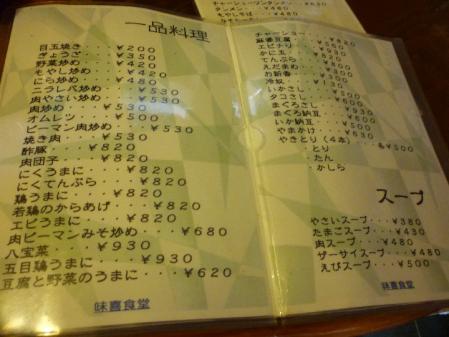 一品料理
目玉焼き・・・¥200
ぎょうざ・・・¥350
野菜炒め・・・¥420
もやし炒め・・・¥420
にら炒め・・・¥480
ニラレバ炒め・・・¥530
肉やさい炒め・・・¥530
肉炒め・・・¥530
オムレツ・・・¥500
ピーマン肉炒め・・・¥530
焼き肉・・・¥530
酢豚・・・¥820
肉団子・・・¥820
にくうまに・・・¥820
にくてんぷら・・・¥820
鶏うまに・・・¥820
若鶏のからあげ・・・¥820
エビうまに・・・¥820
肉ピーマンみそ炒め・・・¥680
八宝菜・・・¥930
五目鶏うまに・・・¥930
豆腐と野菜のうまに・・・¥620
味喜食堂
タンメン
もやしそば
チャーシュー
麻婆豆腐
エビチリ
かに玉
てんぷら
えだまめ
お新香
冷奴・・・¥130
いかさし
タコさし
まぐろさし
まぐろ納豆
いか納豆
やまかけ
やきとり(4本)・・各¥500
・とり
・たん
・かしら
スープ
やさいスープ・・・¥380
たまごスープ・・・¥430
肉スープ・・・¥480
ザーサイスープ・・・¥480
えびスープ・・・¥500
味喜食堂